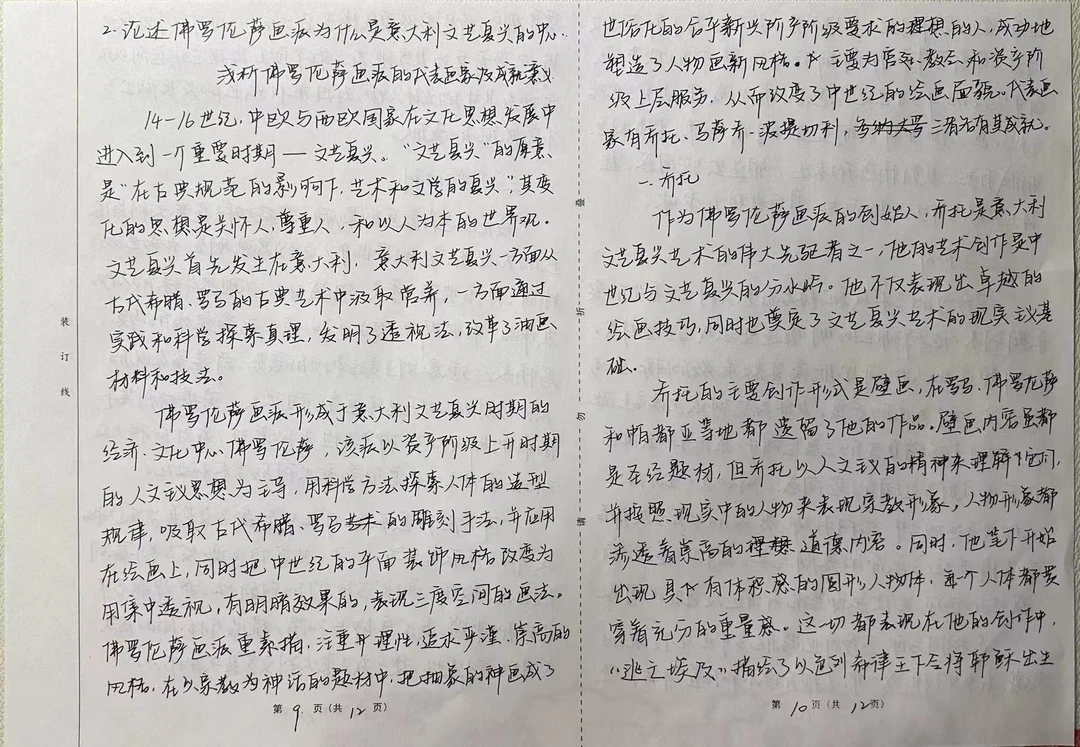 2. 论述佛罗伦萨画派为什么是意大利文艺复兴的中心.
浅析佛罗伦萨画派的代表画家及成就意义
14-16世纪，中欧与西欧国家在文化思想发展中
进入到一个重要时期——文艺复兴。"文艺复兴"的原意
是"在古典规范的影响下，艺术和文学的复兴"，其变
化的思想是关怀人，尊重人，和以人为本的世界观。
文艺复兴首先发生在意大利，意大利文艺复兴一方面从
古代希腊、罗马的古典艺术中汲取营养，一方面通过
实践和科学探索真理，发明了透视法，改革了油画
材料和技法。
佛罗伦萨画派形成于意大利文艺复兴时期的
经济、文化中心佛罗伦萨，该派以资产阶级上升时期
的人文主义思想为主导，用科学方法探索人体的造型
规律，吸取古代希腊、罗马艺术的雕刻手法，并应用
在绘画上，同时把中世纪的平面装饰风格改变为
用集中透视，有明暗效果的，表现三度空间的画法。
佛罗伦萨画派重素描，注重理性，追求严谨、崇高的
风格，在以宗教为神话的题材中，把抽象的神画成了
第9页(共12页)
世俗化的合乎新兴阶产阶级要求的理想的人，成功地
塑造了人物画新风格。主要为宫廷、教会和资产阶
级上层服务，从而改变了中世纪的绘画面貌。代表画
家有乔托、马萨乔、波提切利，三者各有其成就。
一. 乔托
作为佛罗伦萨画派的创始人，乔托是意大利
文艺复兴艺术的伟大先驱者之一，他的艺术创作是中
世纪与文艺复兴的分水岭。他不仅表现出卓越的
绘画技巧，同时也奠定了文艺复兴艺术的现实主义基
础。
乔托的主要创作形式是壁画，在罗马、佛罗伦萨
和帕都亚等地都遗留了他的作品。壁画内容虽都
是圣经题材，但乔托以人文主义的精神来理解它们，
并按照现实中的人物来表现宗教形象，人物形象都
渗透着崇高的理想道德内容。同时，他笔下开始
出现具有体积感的圆形人物体，每个人体都贯
穿着充分的重量感。这一切都表现在他的创作中，
"逃亡埃及"描绘了以色列希律王下令将耶稣出生
第10页(共12页)
装
订
线
叠
折
勿
请